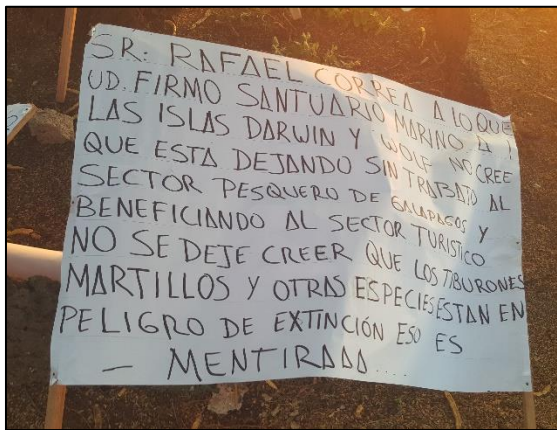 SR: RAFAEL CORREA A LO QUE
UD. FIRMO SANTUARIO MARINO A
LAS ISLAS DARWIN Y WOLF NO CREE
QUE ESTA DEJANDO SIN TRABAJO AL
SECTOR PESQUERO DE GALAPAGOS Y
BENEFICIANDO AL SECTOR TURISTICO
NO SE DEJE CREER QUE LOS TIBURONES
MARTILLOS Y OTRAS ESPECIES ESTAN EN
PELIGRO DE EXTINCIÓN ESO ES
– MENTIRAAA....